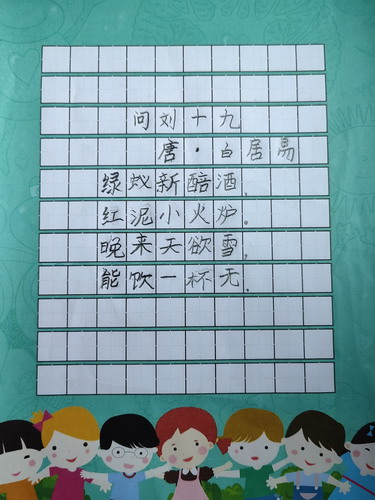 问刘十九
唐·白居易
绿蚁新醅酒，
红泥小火炉。
晚来天欲雪，
能饮一杯无。